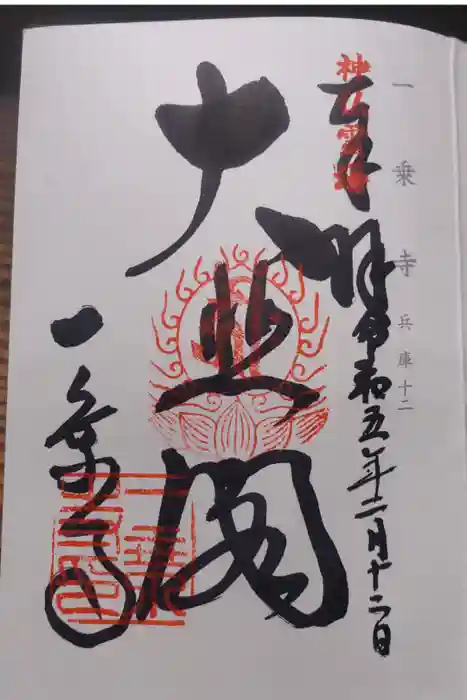 一乗寺 兵庫十二
奉拝
令和五年二月十二日
大悲閣
一乗寺